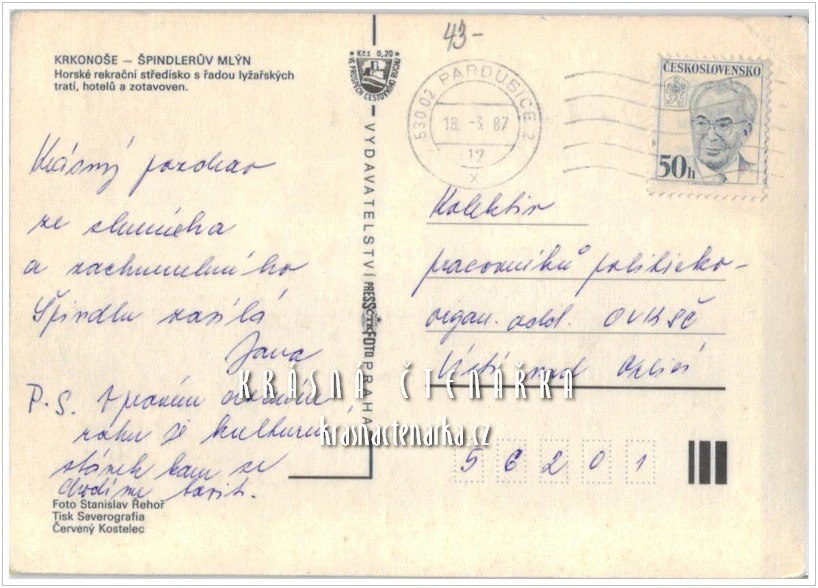 43-
KRKONOŠE — ŠPINDLERŮV MLÝN
Horské rekrační středisko s řadou lyžařských
tratí, hotelů a zotavoven.
Kčs 0,20
VE PROSPĚCH CESTOVNÍHO RUCHU
53002 PARDUBICE 2
18. -3. 87
17
x
ČESKOSLOVENSKO
50h
Krásný pozdrav
ze slunného
a zachumeleného
Špindlu zasílá
Jana
P.S. V pravém
rohu je kulturní
stánek kam se
chodíme bavit.
Foto Stanislav Řehoř
Tisk Severografia
Červený Kostelec
VYDAVATELSTVÍ PRESSFOTO PRAHA
Kolektiv
pracovníků politicko-
organ. odd. OV KSČ
Ústí nad Orlicí
5 6 2 0 1
KRÁSNÁ ČTENÁŘKA
krasnactenarka.cz